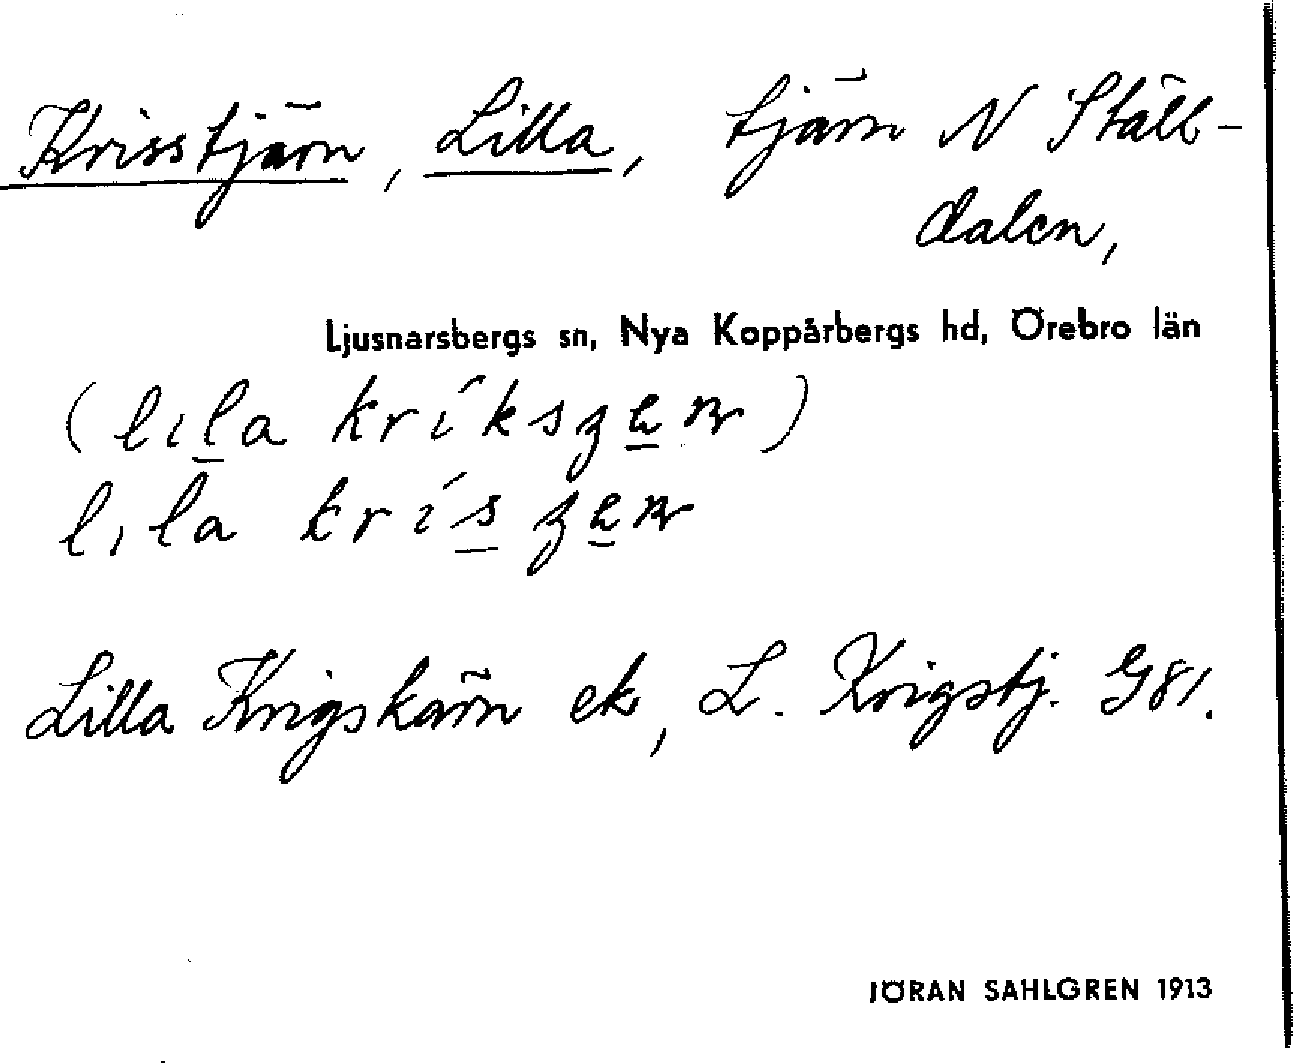 Krisstjärn, Lilla, tjärn N Ställ-
dalen,
Ljusnarsbergs sn, Nya Kopparbergs hd, Örebro län
(lıla kríkszen)
lıla krís zen
Lilla Krigskärn ek, L. Krigstj. G81.
JÖRAN SAHLGREN 1913